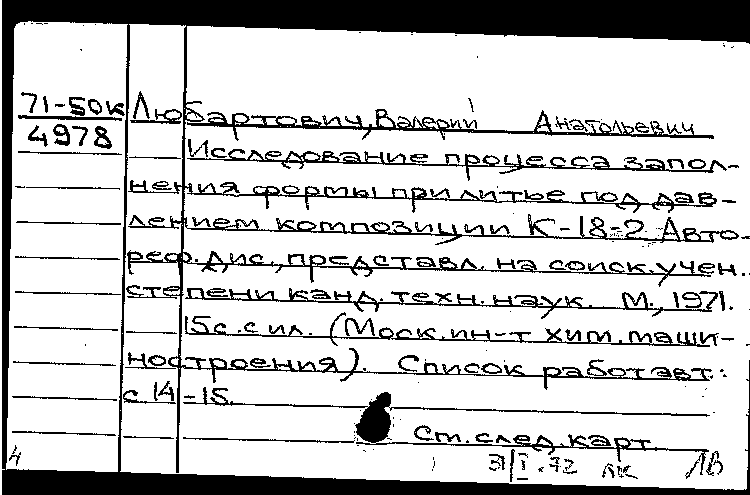 71-50к Любартович, Валерий Анатольевич
4978
Исследование процесса запол-
нения формы при литье под дав-
лением композиции К-18-2 Авто-
реф. дис., представл. на соиск. учен.
степени канд. техн. наук. М., 1971.
15 с. с ил. (Моск. ин-т хим. маши-
ностроения). Список работ авт.:
с 14-15.
См. след. карт.
4 31/I.72 ЛВ